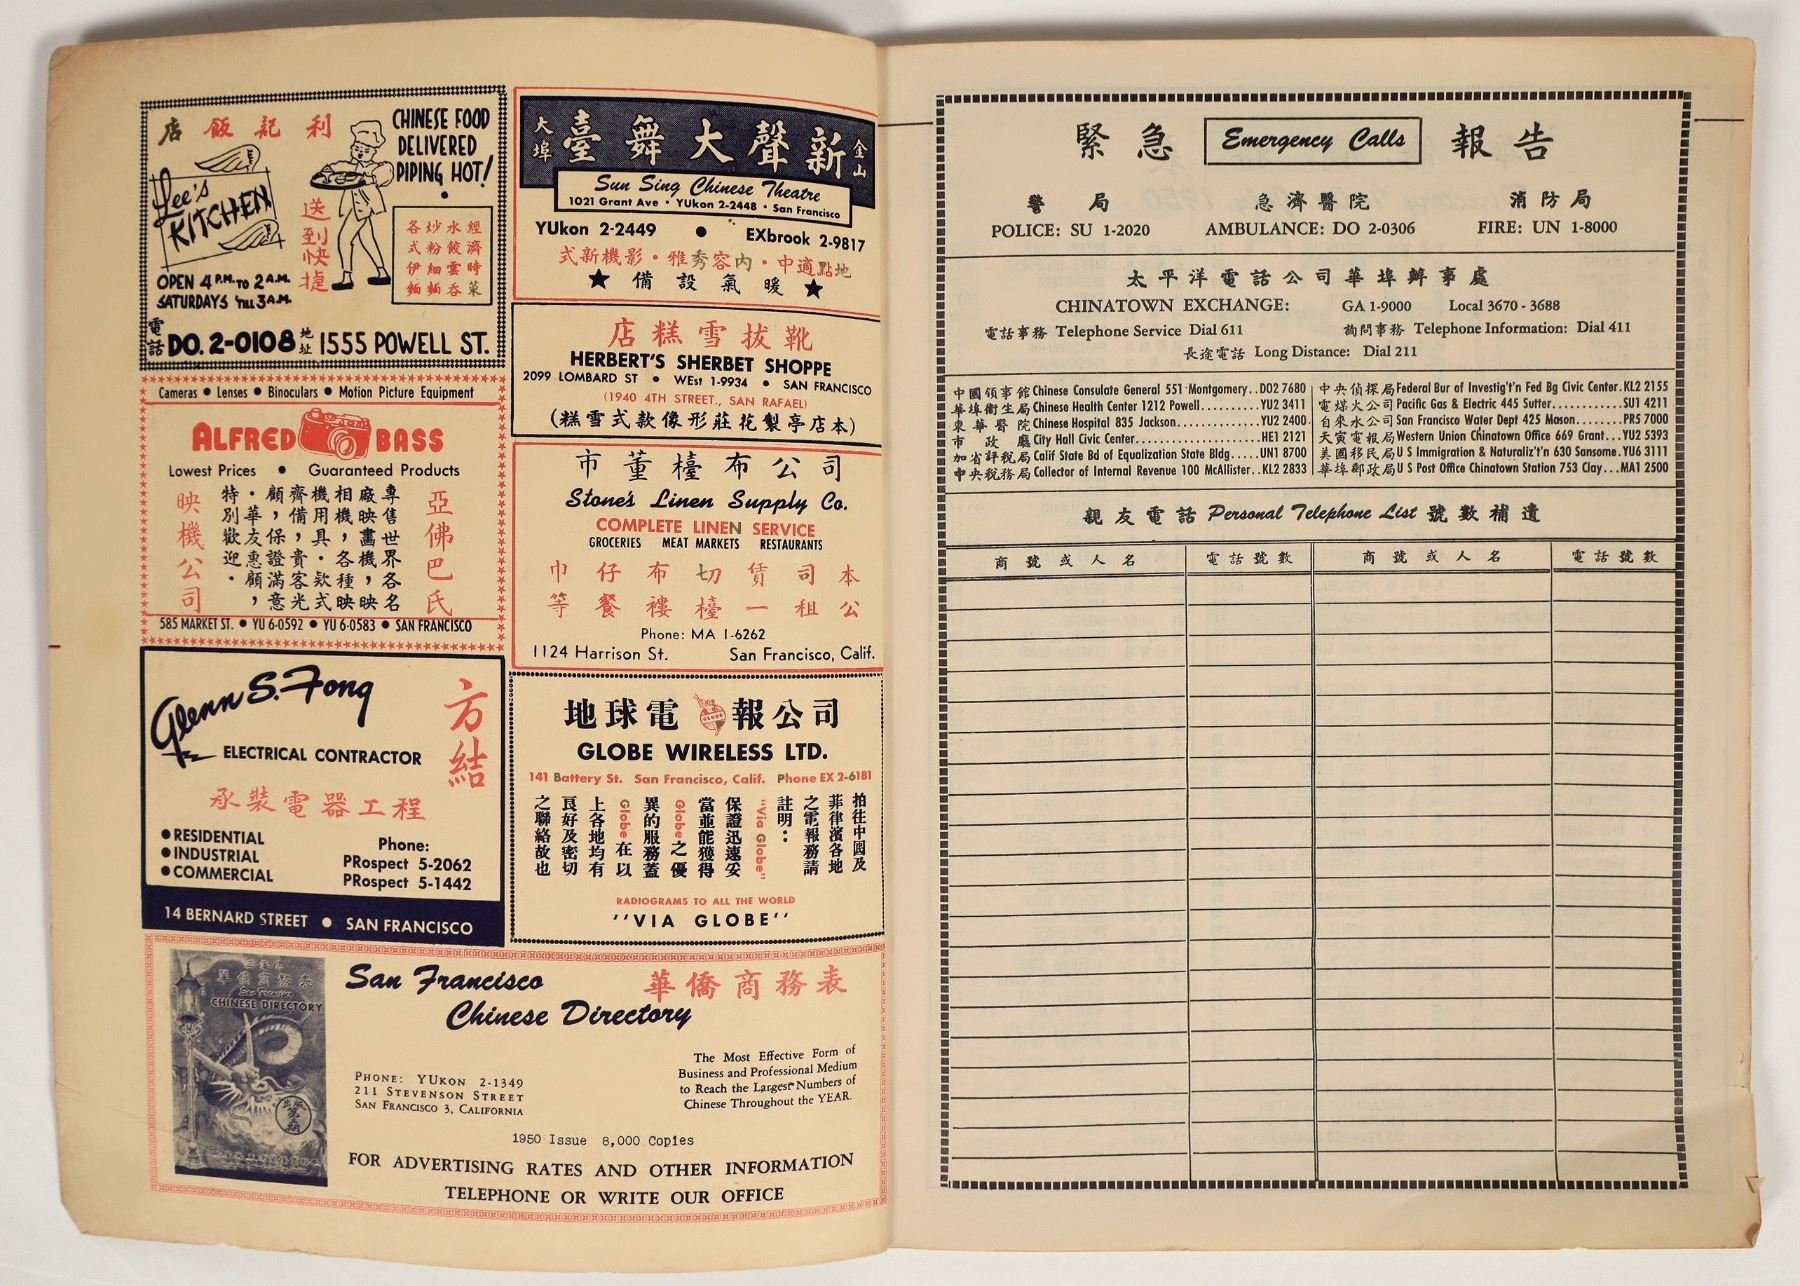 利記飯店
CHINESE FOOD
DELIVERED
PIPING HOT!
Lee's
KITCHEN
送到快捷
經濟時菜
水餃雲吞
炒粉細麵
各式伊麵
OPEN 4 P.M. TO 2 A.M.
SATURDAYS 'TILL 3 A.M.
電話 DO. 2-0108 地址 1555 POWELL ST.
Cameras • Lenses • Binoculars • Motion Picture Equipment
ALFRED BASS
Lowest Prices • Guaranteed Products
亞佛巴氏
專售世界各名
廠映畫機，映
相機，各種映
機用具・欵式
齊備，貴客光
顧，保證滿意
・華友惠顧，
特別歡迎・
映機公司
585 MARKET ST. • YU 6-0592 • YU 6-0583 • SAN FRANCISCO
Glenn S. Fong
方結
ELECTRICAL CONTRACTOR
承裝電器工程
• RESIDENTIAL
• INDUSTRIAL
• COMMERCIAL
Phone:
PRospect 5-2062
PRospect 5-1442
14 BERNARD STREET • SAN FRANCISCO
金山
新聲大舞臺
大埠
Sun Sing Chinese Theatre
1021 Grant Ave • YUkon 2-2448 • San Francisco
YUkon 2-2449 • EXbrook 2-9817
地點適中・內容秀雅・影機新式
★ 暖氣設備 ★
靴拔雪糕店
HERBERT'S SHERBET SHOPPE
2099 LOMBARD ST • WEst 1-9934 • SAN FRANCISCO
(1940 4TH STREET., SAN RAFAEL)
(本店亭製花莊形像款式雪糕)
市董檯布公司
Stone's Linen Supply Co.
COMPLETE LINEN SERVICE
GROCERIES MEAT MARKETS RESTAURANTS
本公
司租
賃一
切檯
布褸
仔餐
巾等
Phone: MA 1-6262
1124 Harrison St. San Francisco, Calif.
地球電報公司
GLOBE
GLOBE WIRELESS LTD.
141 Battery St. San Francisco, Calif. Phone EX 2-6181
拍往中國及
菲律濱各地
之電報務請
註明：
"Via Globe"
保證迅速妥
當並能獲得
Globe之優
異的服務蓋
Globe在以
上各地均有
良好及密切
之聯絡故也
RADIOGRAMS TO ALL THE WORLD
"VIA GLOBE"
華僑商務表
San Francisco
CHINESE DIRECTORY
San Francisco
Chinese Directory
華僑商務表
PHONE: YUKON 2-1349
211 STEVENSON STREET
SAN FRANCISCO 3, CALIFORNIA
The Most Effective Form of
Business and Professional Medium
to Reach the Largest Numbers of
Chinese Throughout the YEAR.
1950 Issue 8,000 Copies
FOR ADVERTISING RATES AND OTHER INFORMATION
TELEPHONE OR WRITE OUR OFFICE
緊急 Emergency Calls 報告
警局 急濟醫院 消防局
POLICE: SU 1-2020 AMBULANCE: DO 2-0306 FIRE: UN 1-8000
太平洋電話公司華埠辦事處
CHINATOWN EXCHANGE: GA 1-9000 Local 3670 - 3688
電話事務 Telephone Service Dial 611 詢問事務 Telephone Information: Dial 411
長途電話 Long Distance: Dial 211
中國領事館 Chinese Consulate General 551 Montgomery..DO2 7680
華埠衛生局 Chinese Health Center 1212 Powell..........YU2 3411
東華醫院 Chinese Hospital 835 Jackson..............YU2 2400
市政廳 City Hall Civic Center....................HE1 2121
加省評稅局 Calif State Bd of Equalization State Bldg.....UN1 8700
中央稅務局 Collector of Internal Revenue 100 McAllister..KL2 2833
中央偵探局 Federal Bur of Investig't'n Fed Bg Civic Center.KL2 2155
電煤火公司 Pacific Gas & Electric 445 Sutter.............SU1 4211
自來水公司 San Francisco Water Dept 425 Mason........PR5 7000
天寅電報局 Western Union Chinatown Office 669 Grant...YU2 5393
美國移民局 U S Immigration & Naturaliz't'n 630 Sansome.YU6 3111
華埠郵政局 U S Post Office Chinatown Station 753 Clay...MA1 2500
親友電話 Personal Telephone List 號數補遺
商號或人名 電話號數 商號或人名 電話號數